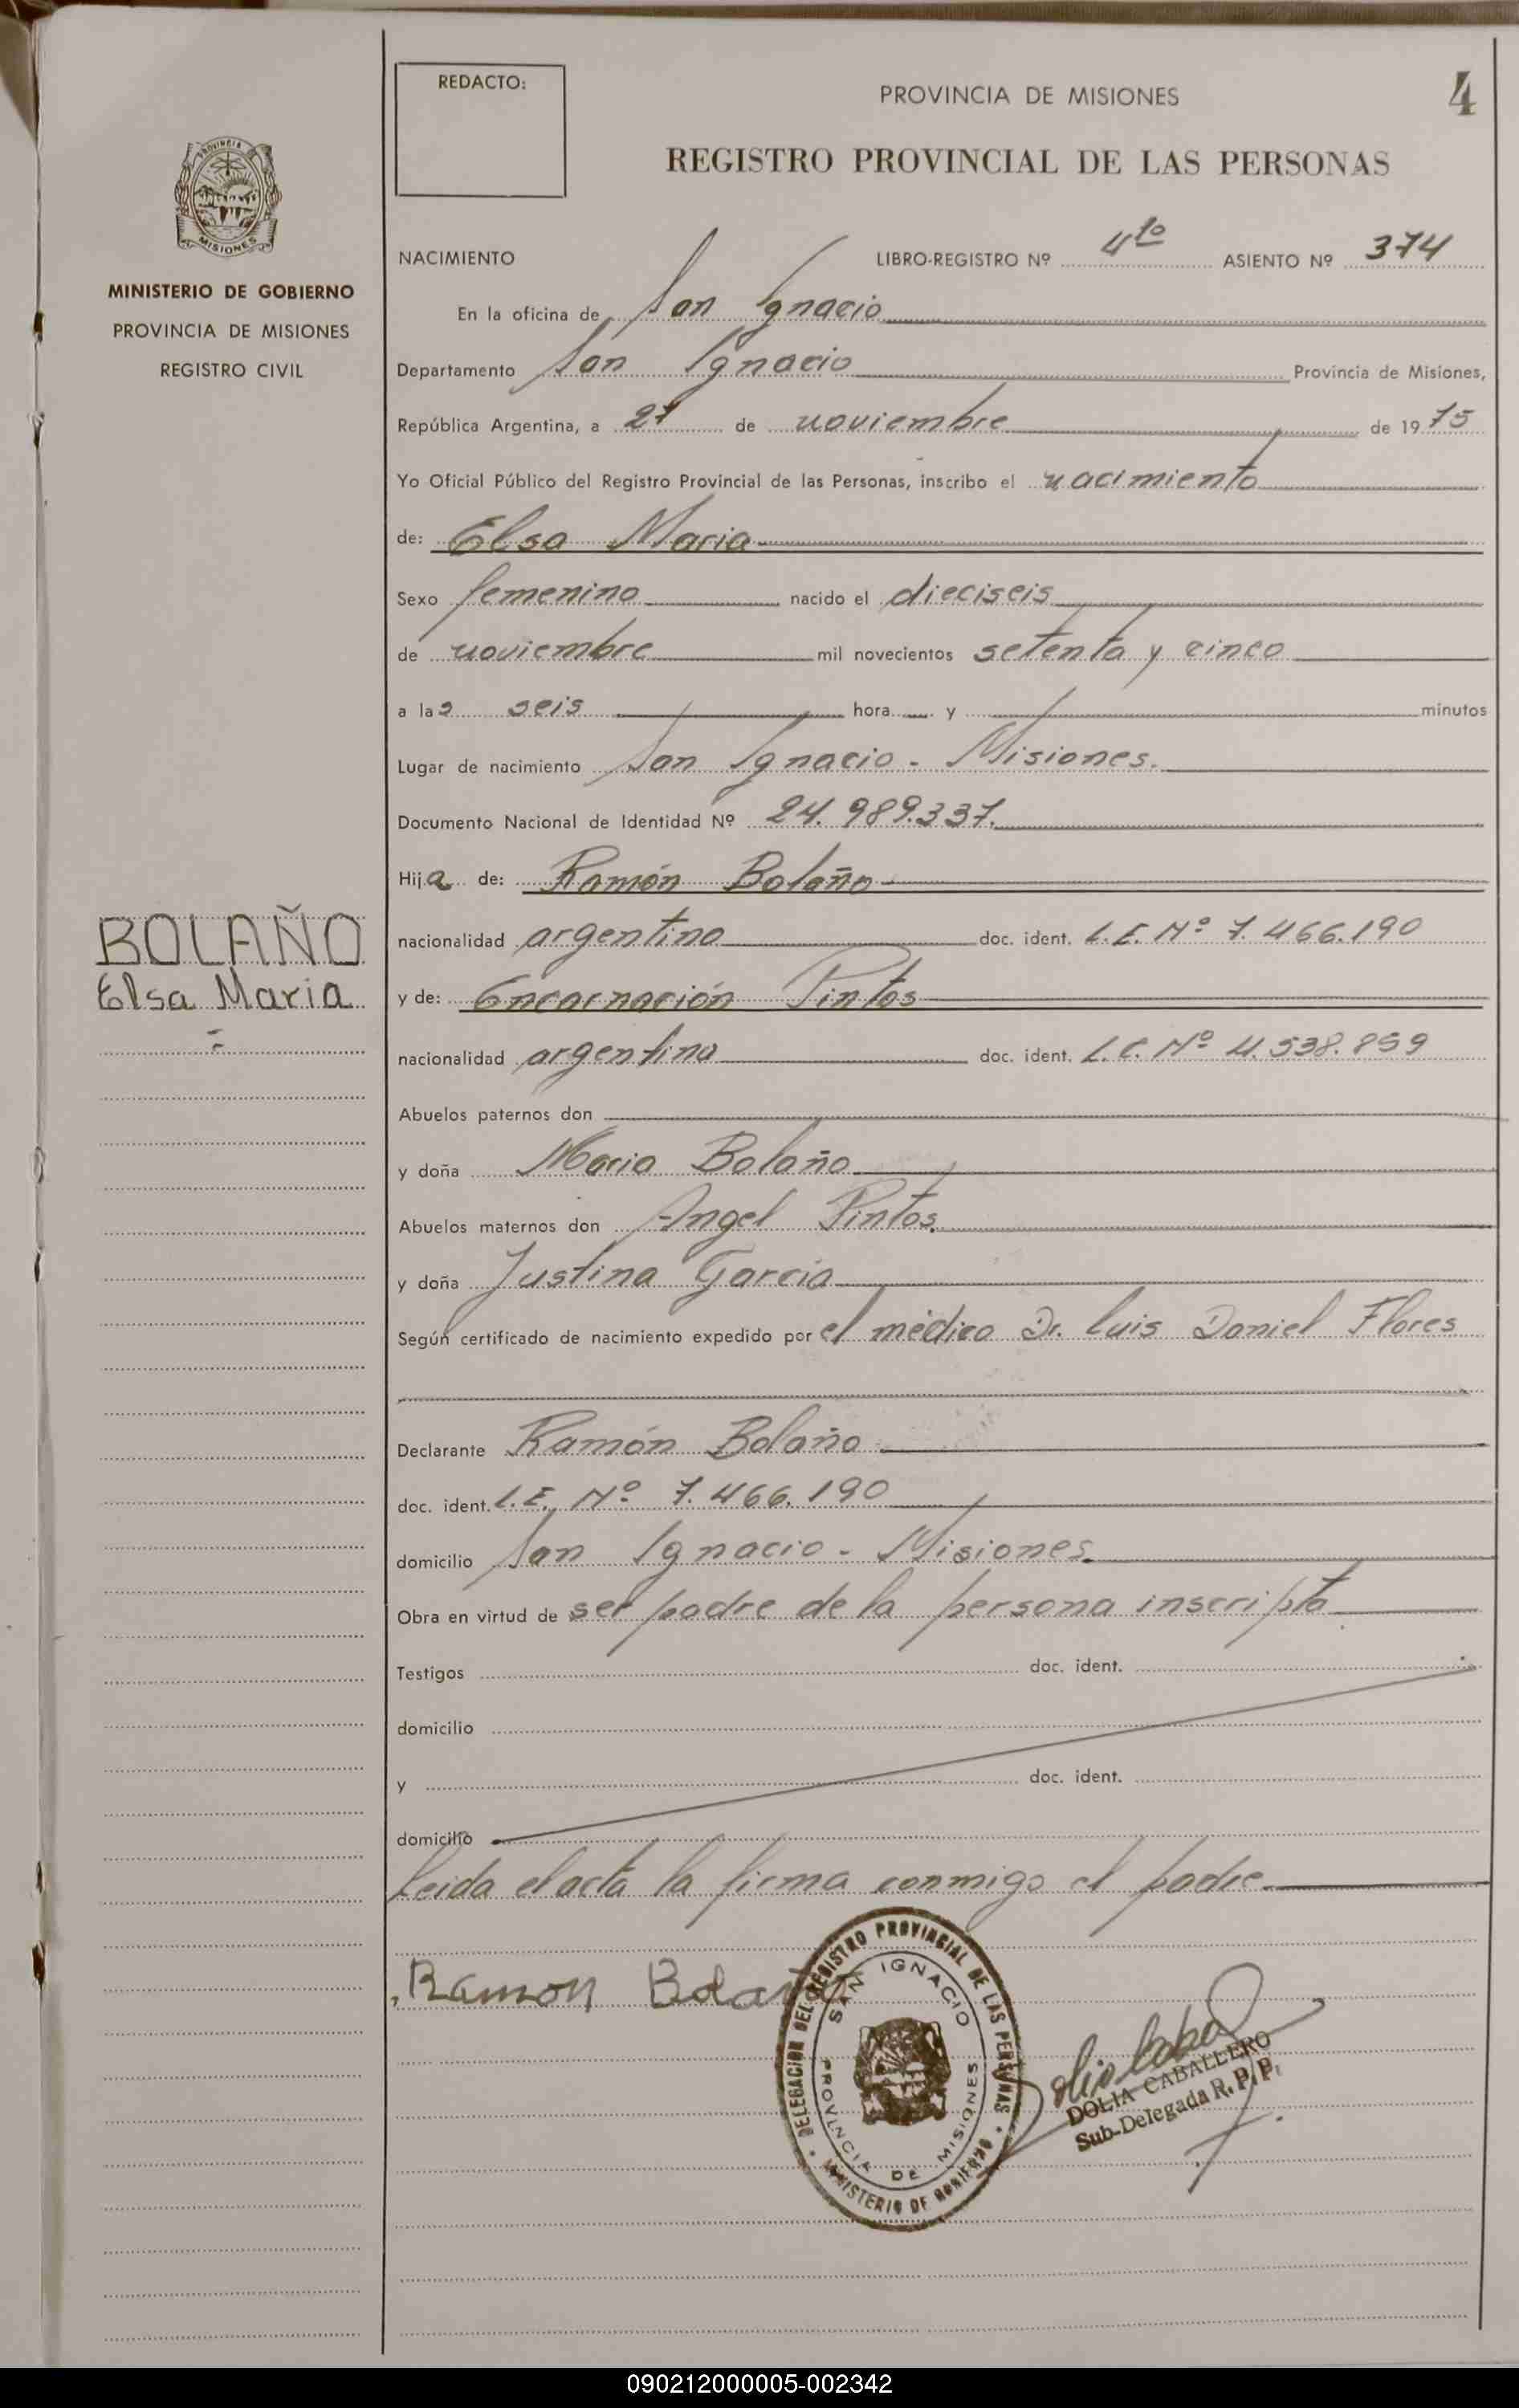 REDACTO:
PROVINCIA DE MISIONES
4
REGISTRO PROVINCIAL DE LAS PERSONAS
PROVINCIA
MISIONES
MINISTERIO DE GOBIERNO
PROVINCIA DE MISIONES
REGISTRO CIVIL
NACIMIENTO LIBRO-REGISTRO Nº 4to ASIENTO Nº 374
En la oficina de San Ignacio
Departamento San Ignacio Provincia de Misiones,
República Argentina, a 27 de noviembre de 1975
Yo Oficial Público del Registro Provincial de las Personas, inscribo el nacimiento
de: Elsa Maria
Sexo femenino nacido el dieciseis
de noviembre mil novecientos setenta y cinco
a las seis hora y minutos
Lugar de nacimiento San Ignacio - Misiones.
Documento Nacional de Identidad Nº 24.989.337.
Hija de: Ramón Bolaño
BOLAÑO
Elsa Maria
nacionalidad argentino doc. ident. L.E. Nº 7.466.190
y de: Encarnación Pintos
nacionalidad argentina doc. ident. L.C. Nº 4.538.859
Abuelos paternos don
y doña Maria Bolaño
Abuelos maternos don Angel Pintos.
y doña Justina Garcia
Según certificado de nacimiento expedido por el médico Dr. Luis Daniel Flores
Declarante Ramón Bolaño
doc. ident. L.E. Nº 7.466.190
domicilio San Ignacio - Misiones.
Obra en virtud de ser padre de la persona inscripta
Testigos doc. ident.
domicilio
y doc. ident.
domicilio
Leida el acta la firma conmigo el padre
Ramon Bolaño
DELEGACION DEL REGISTRO PROVINCIAL DE LAS PERSONAS
SAN IGNACIO
PROVINCIA DE MISIONES
MINISTERIO DE GOBIERNO
DOLIA CABALLERO
Sub-Delegada R. P. P.
090212000005-002342